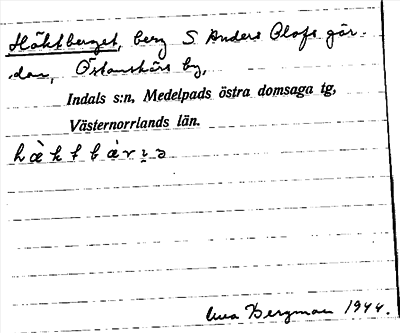 Häktberget, berg S. Anders Olofs går-
dar, Östanskärs by,
Indals s:n, Medelpads östra domsaga tg,
Västernorrlands län.
Bergman 1944.